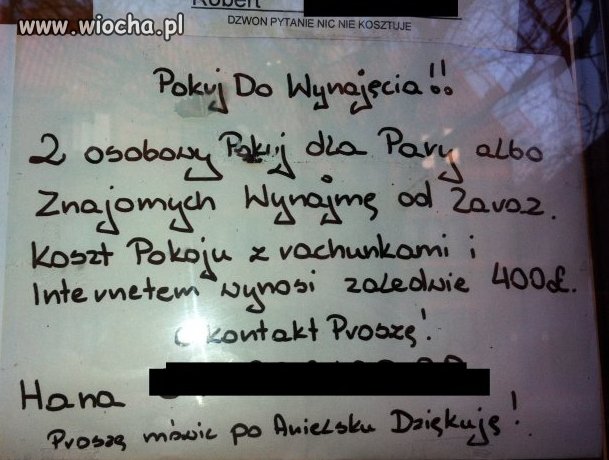 www.wiocha.pl
Robert
DZWON PYTANIE NIC NIE KOSZTUJE
Pokuj Do Wynajęcia!!
2 osobowy Pokuj dla Pary albo
Znajomych Wynajmę od Zaraz.
Koszt Pokoju z rachunkami i
Internetem wynosi zaledwie 400zł.
o kontakt Proszę!
Hana
Proszę mówic po Anielsku Dziękuję!